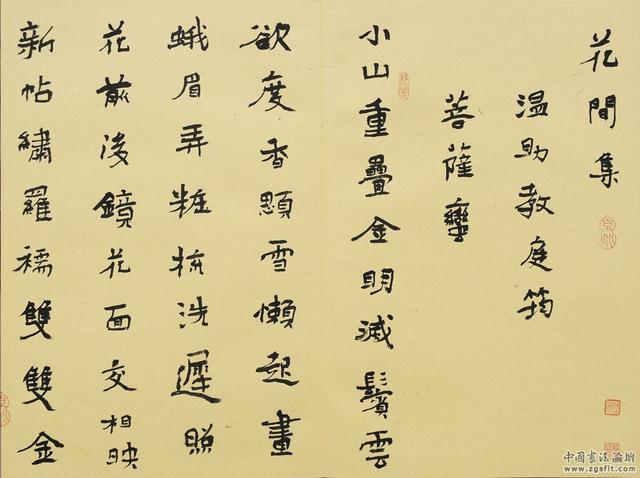 花間集
温助教庭筠
菩薩蠻
小山重疊金明滅鬢雲
欲度香顋雪懶起畫
蛾眉弄粧梳洗遲照
花前後鏡花面交相映
新帖繡羅襦雙雙金
中国書法論壇
www.zgsflt.com